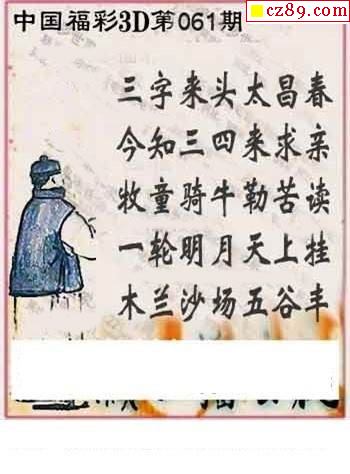 cz89.com
中国福彩3D第061期
三字来头太昌春
今知三四来求亲
牧童骑牛勒苦读
一轮明月天上挂
木兰沙场五谷丰